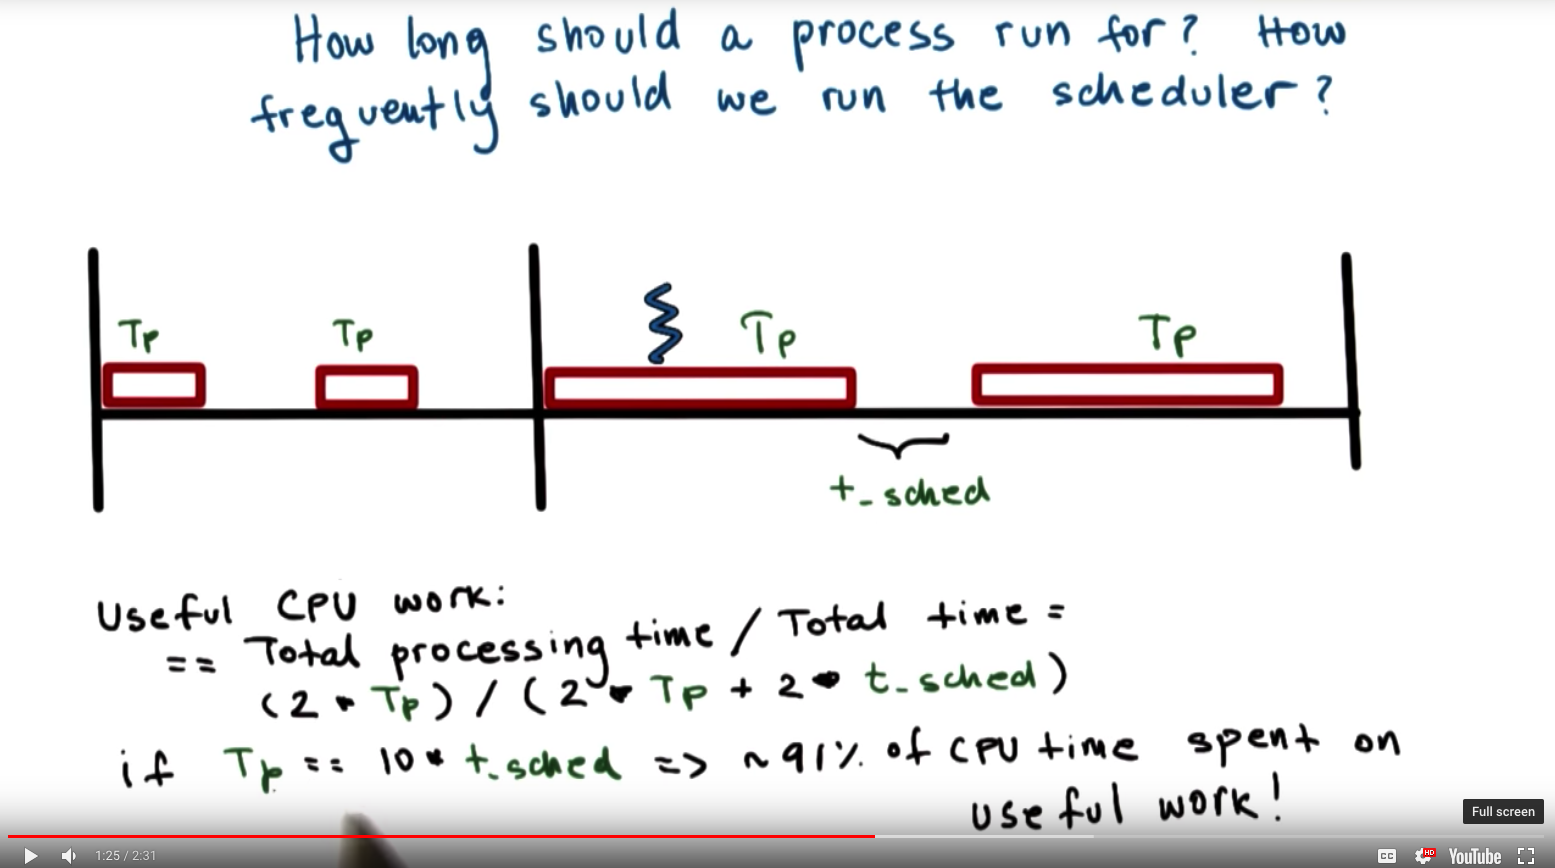 How long should a process run for? How
frequently should we run the scheduler?
Tp Tp Tp Tp
t_sched
Useful CPU work:
== Total processing time / Total time =
(2 * Tp) / (2 * Tp + 2 * t_sched)
if Tp == 10 * t_sched => ~91% of CPU time spent on
useful work!
Full screen
1:25 / 2:31
CC HD YouTube